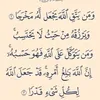 وَمَن يَتَّقِ ٱللَّهَ يَجْعَل لَّهُۥ مَخْرَجًا ۝
وَيَرْزُقْهُ مِنْ حَيْثُ لَا يَحْتَسِبُ
وَمَن يَتَوَكَّلْ عَلَى ٱللَّهِ فَهُوَ حَسْبُهُۥٓ
إِنَّ ٱللَّهَ بَٰلِغُ أَمْرِهِۦ قَدْ جَعَلَ ٱللَّهُ
لِكُلِّ شَىْءٍ قَدْرًا ۝